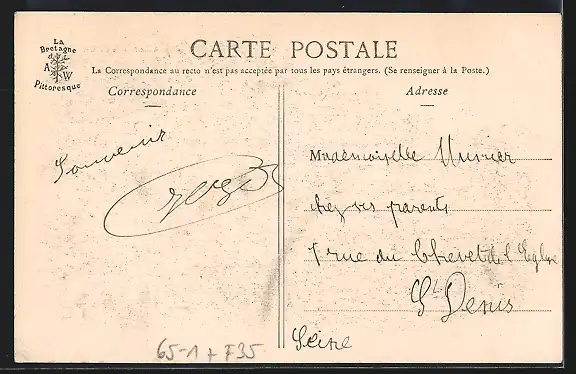 La
Bretagne
A W
Pittoresque
CARTE POSTALE
La Correspondance au recto n'est pas acceptée par tous les pays étrangers. (Se renseigner à la Poste.)
Correspondance
Adresse
Souvenir
Mademoiselle
chez ses parents
7 rue du Chevet de l'Eglise
St Denis
Seine
65-1 + F35